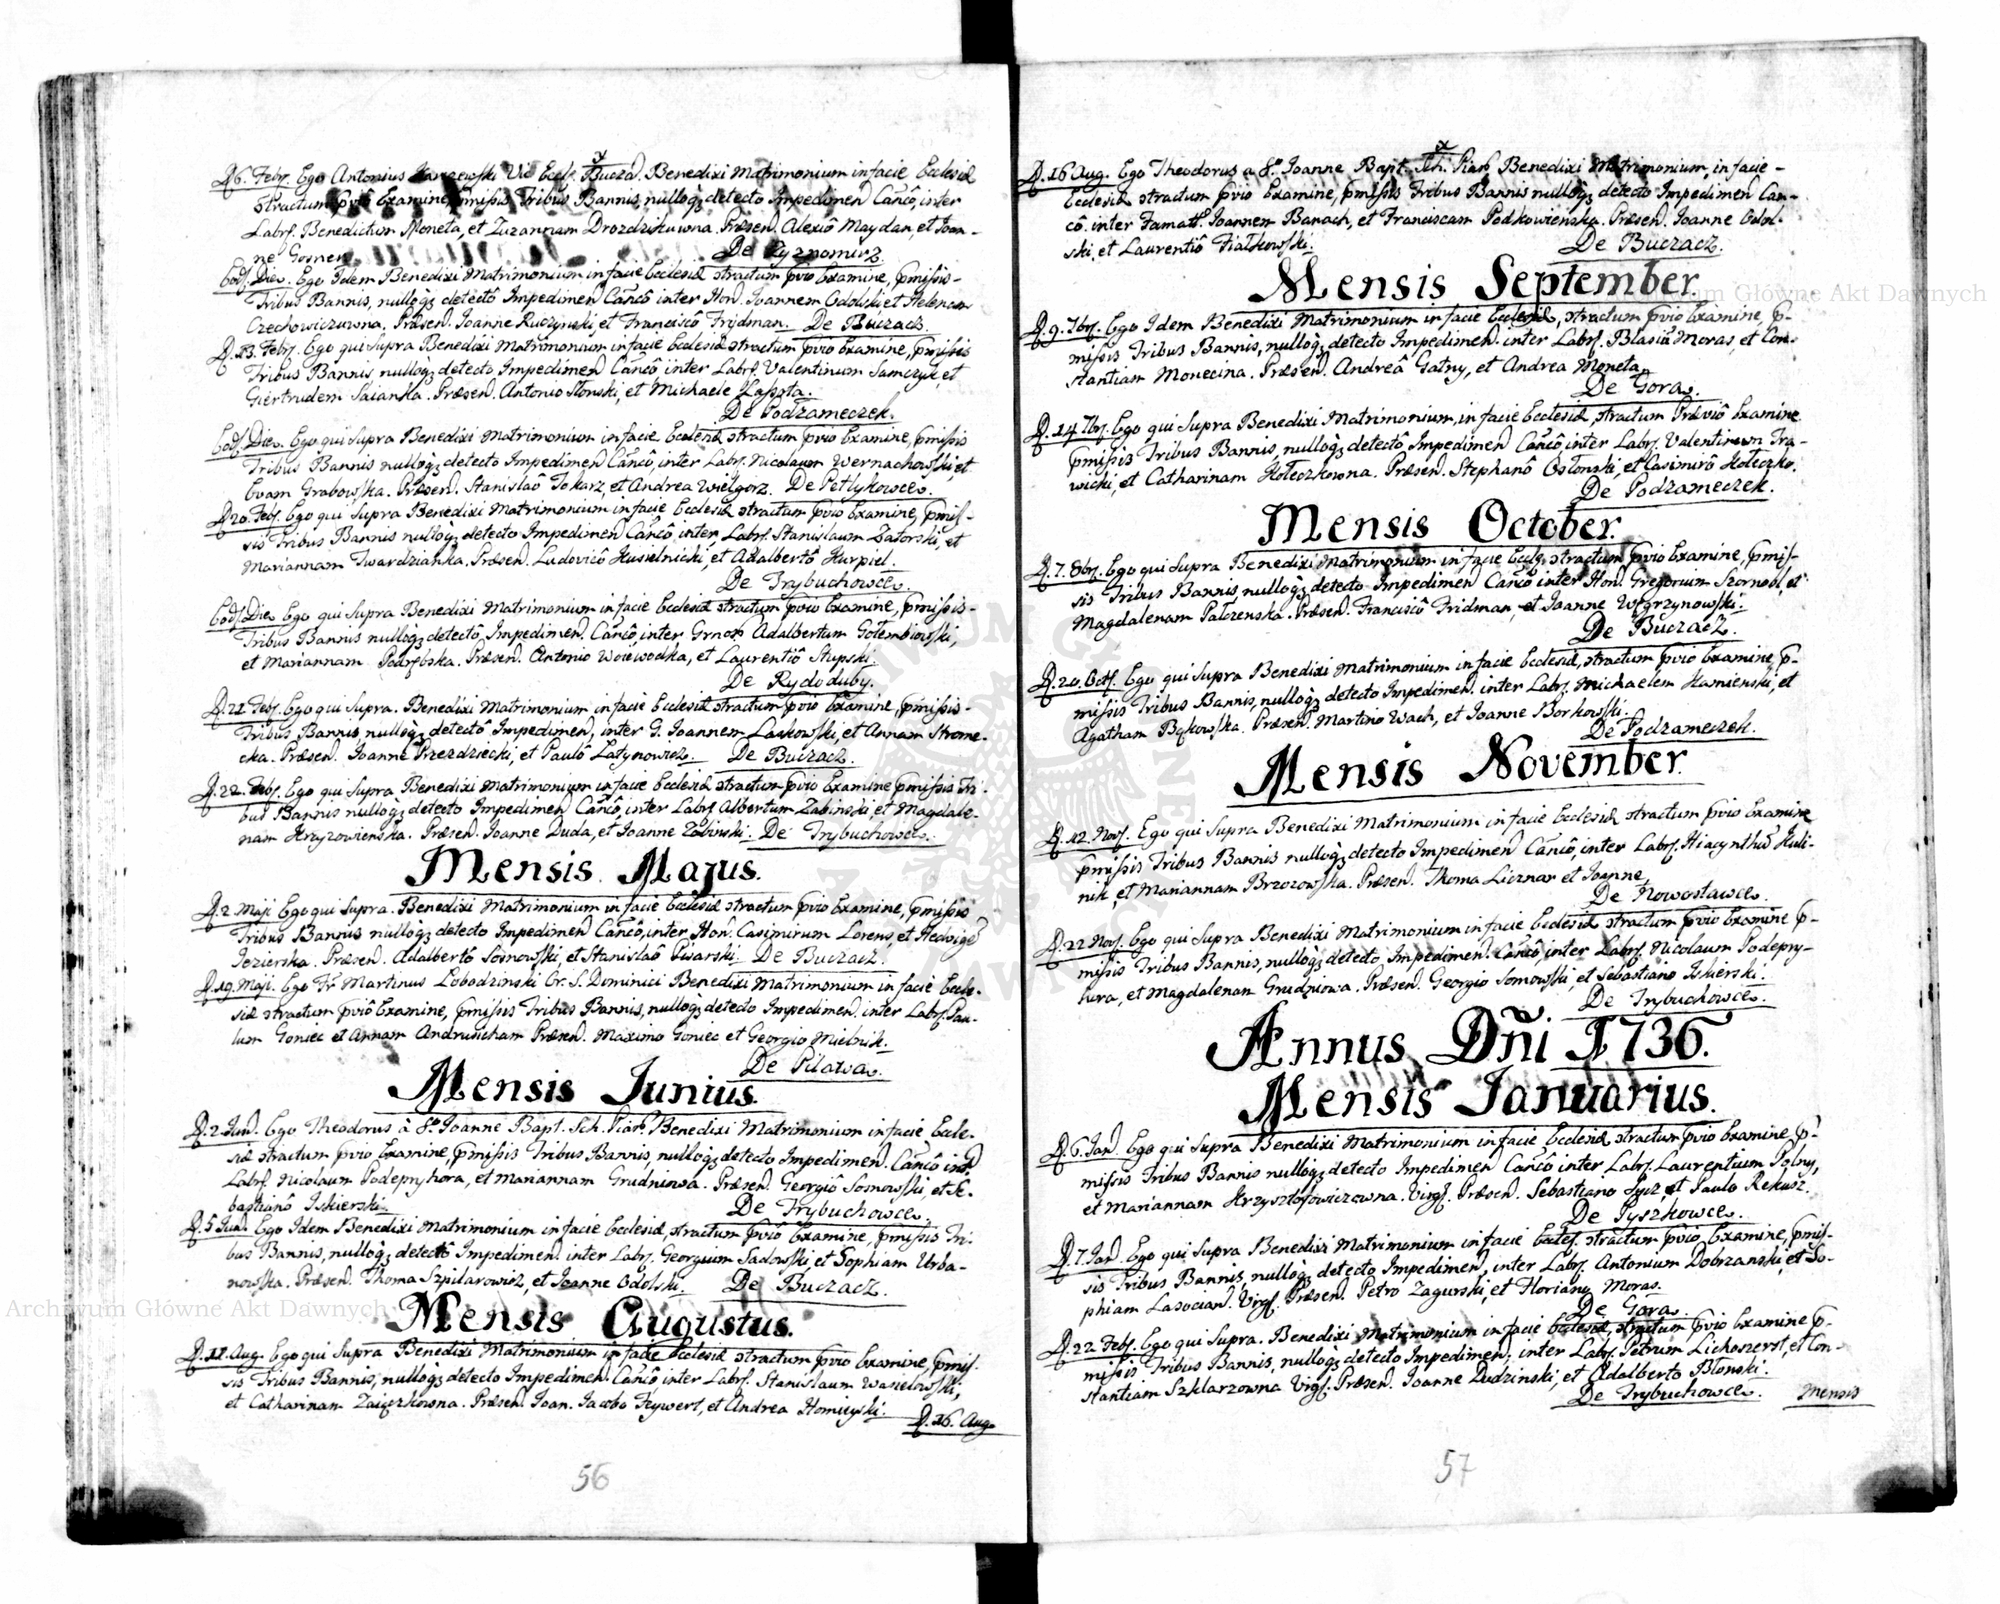 D. 6. Febr. Ego Antonius Jarczewski Vic Eccl. Bucza. Benedixi Matrimonium in facie Ecclesiæ
stractum pviô Examine, pmissis Tribus Bannis, nullòq; detecto Impedimen Cancô, inter
Labrs. Benedictum Moneta, et Zuzannam Drozdzikuwna. Præsen. Alexiô Maydan, et Joan-
ne Gorner.
De Zyznomirz.
Eod. Die. Ego Idem Benedixi Matrimonium in facie Ecclesiæ stractum pvio Examine, pmissis-
Tribus Bannis, nullòq; detectô Impedimen Cancô inter Hon. Joannem Odolski et Helenam
Czechowiczuwna. Præsen. Joanne Ruczynski, et Franciscô Frydman. De Buczacz.
D. 13. Febr. Ego qui Supra Benedixi Matrimonium in facie Ecclesiæ stractum pvio Examine, pmissis
Tribus Bannis, nullòq; detecto Impedimen Cancô inter Labrs. Valentinum Samczyk et
Giertrudem Saianka. Præsen. Antonio Slonski, et Michaele Lassota.
De Podzameczek.
Eod. Die. Ego qui Supra Benedixi Matrimonium in facie Ecclesiæ stractum pvio Examine, pmissis
Tribus Bannis nullòq; detecto Impedimen Cancô, inter Labrs. Nicolaum Wernachowski, et
Evam Grabowska. Præsen. Stanislaô Tokarz, et Andrea Wielgorz. De Petlykowce.
D. 20. Febr. Ego qui Supra Benedixi Matrimonium in facie Ecclesiæ stractum pvio Examine, pmis-
sis Tribus Bannis nullòq; detecto Impedimen Cancô, inter, Labrs. Stanislaum Zatorski, et
Mariannam Twardzianka. Præsen. Ludovicô Husielnicki, et Adalbertô Kurpiel.
De Trybuchowce.
Eod. Die. Ego qui Supra Benedixi Matrimonium in facie Ecclesiæ stractum pvio Examine, pmissis-
Tribus Bannis nullòq; detectô, Impedimen. Cancô, inter Grnos Adalbertum Gołembiowski,
et Mariannam Porębska. Præsen. Antonio Woiewodka, et Laurentiô Stupski.
De Rydoduby.
D. 21. Febr. Ego qui Supra. Benedixi Matrimonium in facie Ecclesiæ stractum pvio Examine, pmissis-
Tribus, Bannis, nullòq; detectô Impedimen, inter G. Joannem Laskowski, et Annam Strome-
cka. Præsen. Joanne Przezdziecki, et Paulô Latynowicz. De Buczacz.
D. 22. Febr. Ego qui Supra Benedixi Matrimonium in facie Ecclesiæ stractum pvio Examine pmissis Tri-
bus Bannis nullòq; detecto Impedimen Cancô, inter Labrs Albertum Zabinski et Magdale-
nam Krzyzowienska. Præsen. Joanne Duda, et Joanne Zabinski. De Trybuchowce.
Mensis Majus.
D. 2. Maji Ego qui Supra. Benedixi Matrimonium in facie Ecclesiæ stractum pvio Examine, pmissis
Tribus Bannis nullòq; detecto Impedimen Cancô, inter Hon. Casimirum Lorens, et Hedvige
Jezierska. Præsen. Adalbertô Sosnowski, et Stanislaô Pisarski. De Buczacz.
D. 19. Maji. Ego Fr Martinus Lobodzinski Or. S. Dominici Benedixi Matrimonium in facie Eccle-
siæ stractum pviô Examine, pmissis Tribus Bannis, nullòq; detecto Impedimen. inter Labrs. Pau-
lum Goniec et Annam Andruscham Præsen. Maximo Goniec et Georgio Mielnik.
De Pilawa.
Mensis Junius.
D. 2. Jun. Ego Theodorus à S. Joanne Bapt. Sch. Piar. Benedixi Matrimonium in facie Eccle-
siæ stractum pvio Examine, pmissis Tribus Bannis, nullòq; detecto Impedimen. Cancô inter
Labrs. Nicolaum Podepryhora, et Mariannam Grudniowa. Præsen. Georgiô Somowski, et Se-
bastianô Iskierski.
De Trybuchowce.
D. 5. Jun. Ego Idem Benedixi Matrimonium in facie Ecclesiæ, stractum pviô Examine, pmissis Tri-
bus Bannis, nullòq; detectô Impedimen inter Labrs. Georgium Sadowski, et Sophiam Urba-
nowska. Præsen. Thoma Szpilarowicz, et Joanne Odolski. De Buczacz.
Mensis Augustus.
D. 11. Aug. Ego qui Supra Benedixi Matrimonium in facie Ecclesiæ stractum pvio Examine, pmis-
sis Tribus Bannis, nullòq; detecto Impedimen. Cancô inter Labrs. Stanislaum Wasielewski,
et Catharinam Zaiączkowna. Præsen. Joan. Jacobo Feywert, et Andrea Homicyski.
D. 16. Aug.
56
D. 16 Aug. Ego Theodorus a S. Joanne Bapt. Sch. Piar. Benedixi Matrimonium, in facie-
Ecclesiæ stractum pvio Examine, pmissis Tribus Bannis nullòq; detecto Impedimen Can-
cô. inter Famatt. Joannem Banach, et Franciscam Podkowienska. Præsen. Joanne Odol-
ski, et Laurentiô Fiatkowski.
De Buczacz.
Mensis September.
D. 9. 7br. Ego Idem Benedixi Matrimonium in facie Ecclesiæ, stractum pvio Examine, p-
missis Tribus Bannis, nullòq; detecto Impedimen. inter Labrs. Blasiu Moras, et Con-
stantiam Monecina. Præsen. Andreâ Gatny, et Andrea Moneta.
De Gora.
D. 14 7br. Ego qui Supra Benedixi Matrimonium, in facie Ecclesiæ, stractum Præviô Examine
pmissis Tribus Bannis, nullòq; detectô Impedimen Cancô inter Labrs. Valentinum Tra-
wicki, et Catharinam Hołeczkowna. Præsen. Stephanô Osłonski, et Casimirô Hołeczko.
De Podzameczek.
Mensis October.
D. 7. 8br. Ego qui Supra Benedixi Matrimonium in facie Eccle. stractum pvio Examine, pmis-
sis Tribus Bannis, nullòq; detecto Impedimen Cancô inter Hon. Gregorium Szornobl, et
Magdalenam Palczenska. Præsen. Franciscô Fridman, et Joanne Węgrzynowski.
De Buczacz.
D. 20. Oct. Ego qui Supra Benedixi Matrimonium in facie Ecclesiæ, stractum pvio Examine, p-
missis Tribus Bannis, nullòq; detecto Impedimen. inter Labrs. Michaelem Kamienski, et
Agatham Bąkowska. Præsen. Martino Wach, et Joanne Borkowski.
De Podzameczek.
Mensis November.
D. 12. Nov. Ego qui Supra Benedixi Matrimonium in facie Ecclesiæ stractum pvio Examine
pmissis Tribus Bannis nullòq; detecto Impedimen Cancô, inter Labrs. Hiacynthu Kuli-
nik, et Mariannam Brzozowska. Præsen. Thoma Licznar et Joanne,
De Nowostawce.
D. 22 Nov. Ego qui Supra Benedixi Matrimonium in facie Ecclesiæ stractum pvio Examine p-
missis Tribus Bannis, nullòq; detecto, Impedimen. Cancô, inter Labrs. Nicolaum Podepry-
hora, et Magdalenam Grudniowa. Præsen. Georgio Somowski, et Sebastiano Iskierski.
De Trybuchowce.
Annus Dñi 1736.
Mensis Januarius.
D. 6. Jan. Ego qui Supra Benedixi Matrimonium in facie Ecclesiæ stractum pvio Examine p-
missis Tribus Bannis nullòq; detecto Impedimen Cancô inter Labrs. Laurentium Polny,
et Mariannam Krzysztofowiczowna. Virg. Præsen. Sebastiano Sycz, et Paulo Rekusz.
De Pyszkowce.
D. 7. Jan. Ego qui Supra Benedixi Matrimonium in facie Eccles. stractum pvio, Examine, pmis-
sis Tribus Bannis, nullòq; detecto Impedimen, inter Labrs. Antonium Dobrzanski, et So-
phiam Lasocian. Virg. Præsen. Petro Zagurski, et Floriano Moras.
De Gora.
D. 22 Febr. Ego qui Supra. Benedixi Matrimonium in facie Ecclesiæ, stractum pvio Examine p-
missis Tribus Bannis, nullòq; detecto Impedimen. inter Labrs. Petrum Lichoszerst, et Con-
stantiam Szklarzowna Virg. Præsen. Joanne Dudzinski, et Adalberto Blonski.
De Trybuchowce.
Mensis
57
Archiwum Główne Akt Dawnych
Archiwum Główne Akt Dawnych